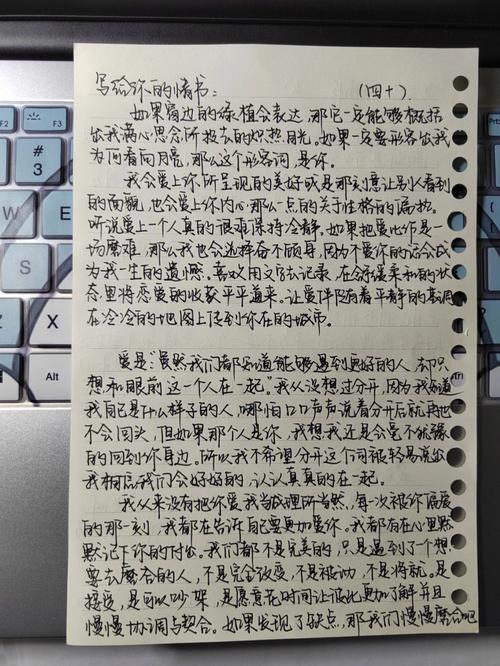 写给你的情书： （四十）
如果窗边的绿植会表达，那它一定能够概括
出我满心思念所投去的炽热目光。如果一定要形容出我
为何看向月亮，那么这个形容词，是你。
我会爱上你所呈现的美好或是刻意让别人看到
的面貌，也会爱上你内心那么一点的关于性格的偏执。
听说爱上一个人真的很难保持冷静，如果把爱比作是一
场磨难，那么我也会选择奋不顾身，因为不爱你的话会成
为我一生的遗憾。喜欢用文字去记录，在舒缓柔和的状
态里将恋爱的收获平平道来。让爱伴随着平静的基调
在冷冷的地图上传到你在的城市。
爱是：“虽然我们都知道能够遇到更好的人，却只
想和眼前这一个人在一起。”我从没想过分开，因为我知道
我自己是什么样子的人，哪怕口口声声说着分开后就再也
不会回头，但如果那个人是你，我想我还是会毫不犹豫
的回到你身边。所以我不希望分开这个词被轻易说出
我相信我们会好好的，认认真真的在一起。
我从来没有把你爱我当成理所当然，每一次被你偏爱
的那一刻，我都在告诉自己要更加爱你。我都有在心里默
默记下你的付出。我们都不是完美的，只是遇到了个想
要去磨合的人，不是完全改变，不是被动，不是将就。是
接受，是可以吵架，是愿意花时间让彼此更加了解并且
慢慢协调与契合。如果发现了缺点，那我们慢慢磨合吧
F2
F3
#
3
$
4
E